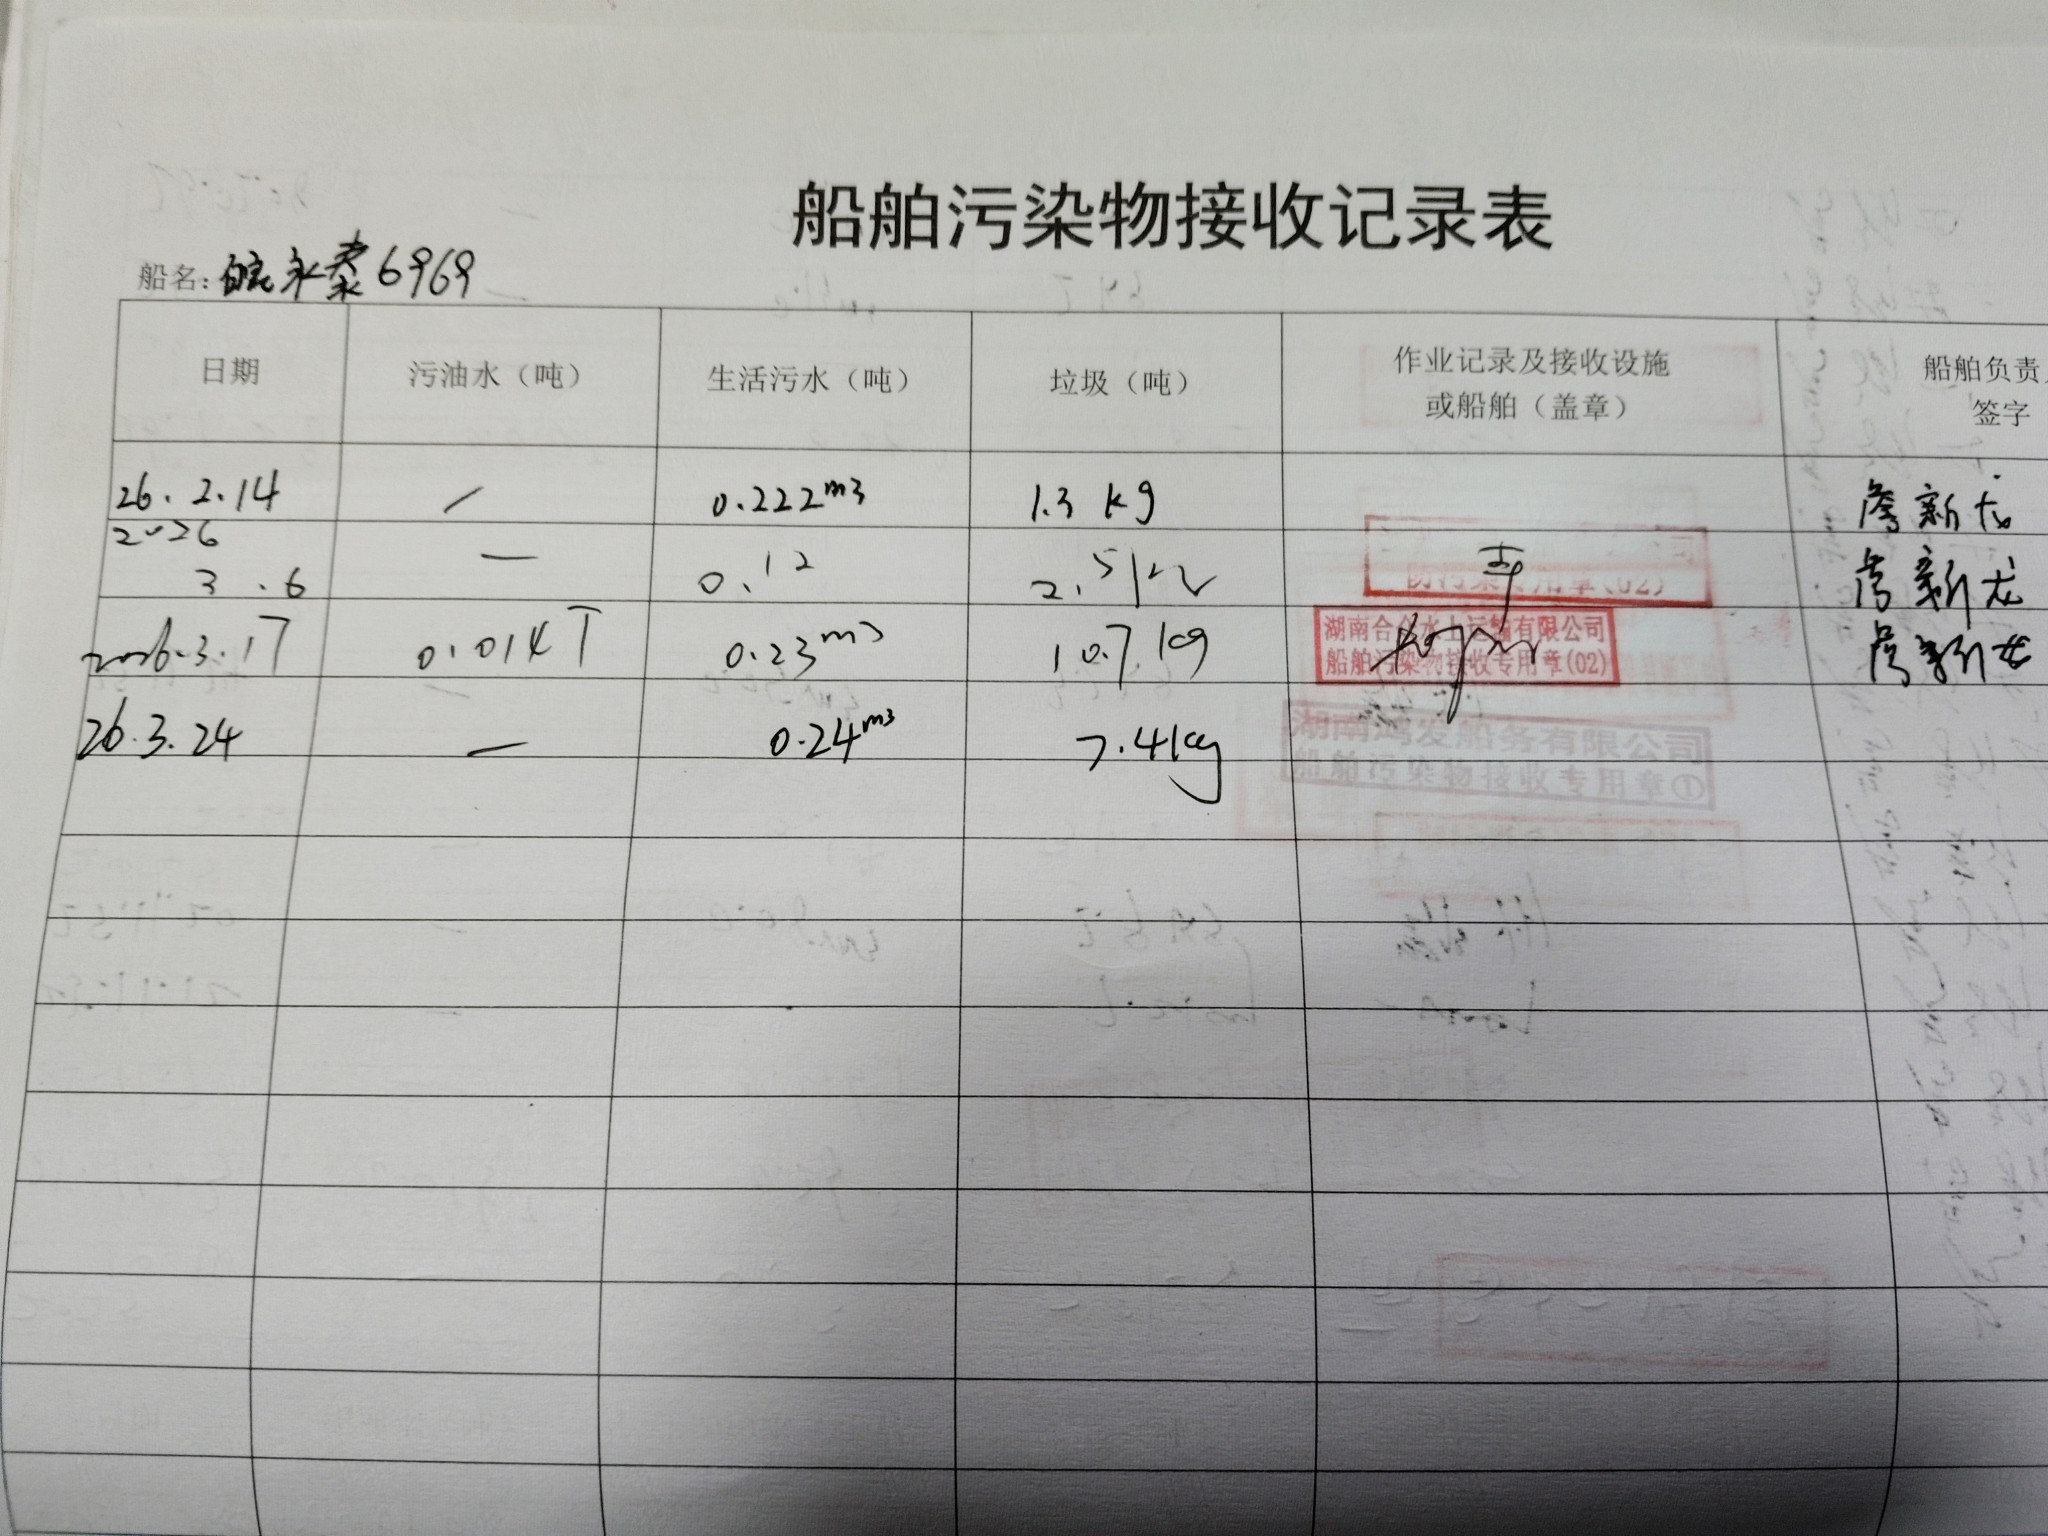 船舶污染物接收记录表
船名: 皖永泰6969
日期 污油水（吨） 生活污水（吨） 垃圾（吨） 作业记录及接收设施 船舶负责
或船舶（盖章） 签字
26.2.14 / 0.222m3 1.3 kg 新龙
2026
3.6 — 0.12 2.5 新龙
防污染 用章(02)
2026.3.17 0.014T 0.23m3 10.7kg 新龙
湖南合众水上运输有限公司
船舶污染物接收专用章(02)
26.3.24 — 0.24m3 7.4kg
湖南鸿发船务有限公司
船舶污染物接收专用章①